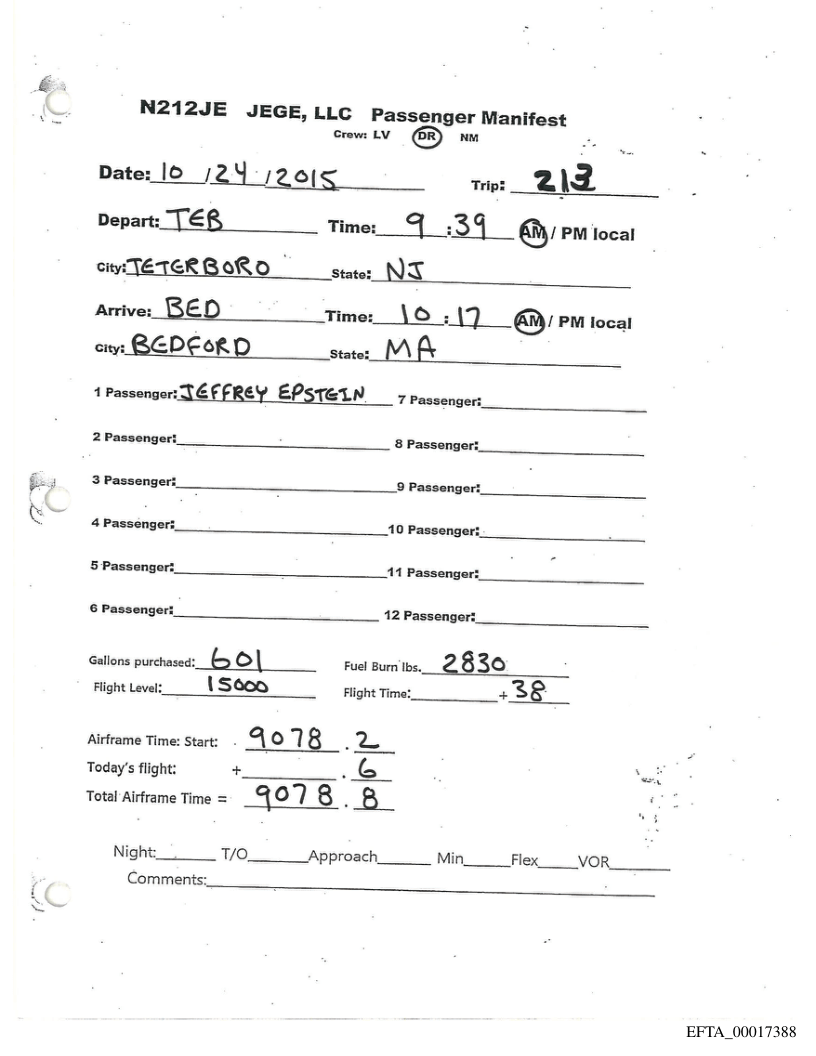 N212JE JEGE, LLC Passenger Manifest
Crew: LV DR NM
Date: 10 / 24 / 2015 Trip: 213
Depart: TEB Time: 9 : 39 AM / PM local
City: TETERBORO State: NJ
Arrive: BED Time: 10 : 17 AM / PM local
City: BEDFORD State: MA
1 Passenger: JEFFREY EPSTEIN 7 Passenger:
2 Passenger: 8 Passenger:
3 Passenger: 9 Passenger:
4 Passenger: 10 Passenger:
5 Passenger: 11 Passenger:
6 Passenger: 12 Passenger:
Gallons purchased: 601 Fuel Burn lbs. 2830
Flight Level: 15000 Flight Time: + 38
Airframe Time: Start: 9078 . 2
Today's flight: + . 6
Total Airframe Time = 9078 . 8
Night: T/O Approach Min Flex VOR
Comments:
EFTA_00017388